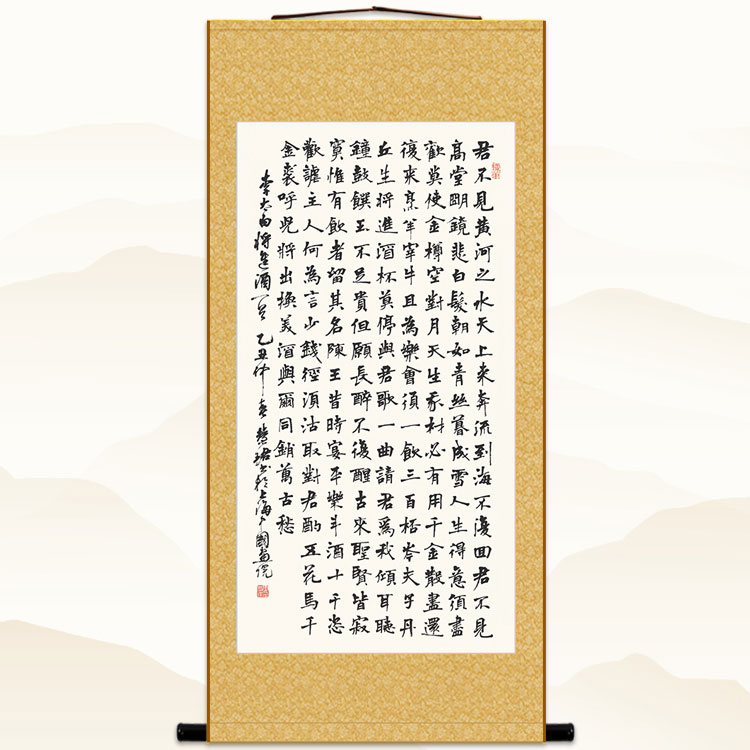 君不見黃河之水天上来奔流到海不復回君不見
高堂眀鏡悲白髮朝如青絲暮成雪人生得意須盡
歡莫使金樽空對月天生我材必有用千金散盡還
復来烹羊宰牛且為樂會須一飲三百桮岑夫子丹
丘生將進酒杯莫停與君歌一曲請君爲我傾耳聽
鐘鼓饌玉不足貴但願長醉不復醒古來聖賢皆寂
寞惟有飲者留其名陳王昔時宴平樂斗酒十千恣
歡謔主人何為言少錢徑須沽取對君酌五花馬千
金裘呼兒將出換美酒與爾同銷萬古愁
李太白將進酒一首 乙丑仲春慧珺书於上海中國畫院